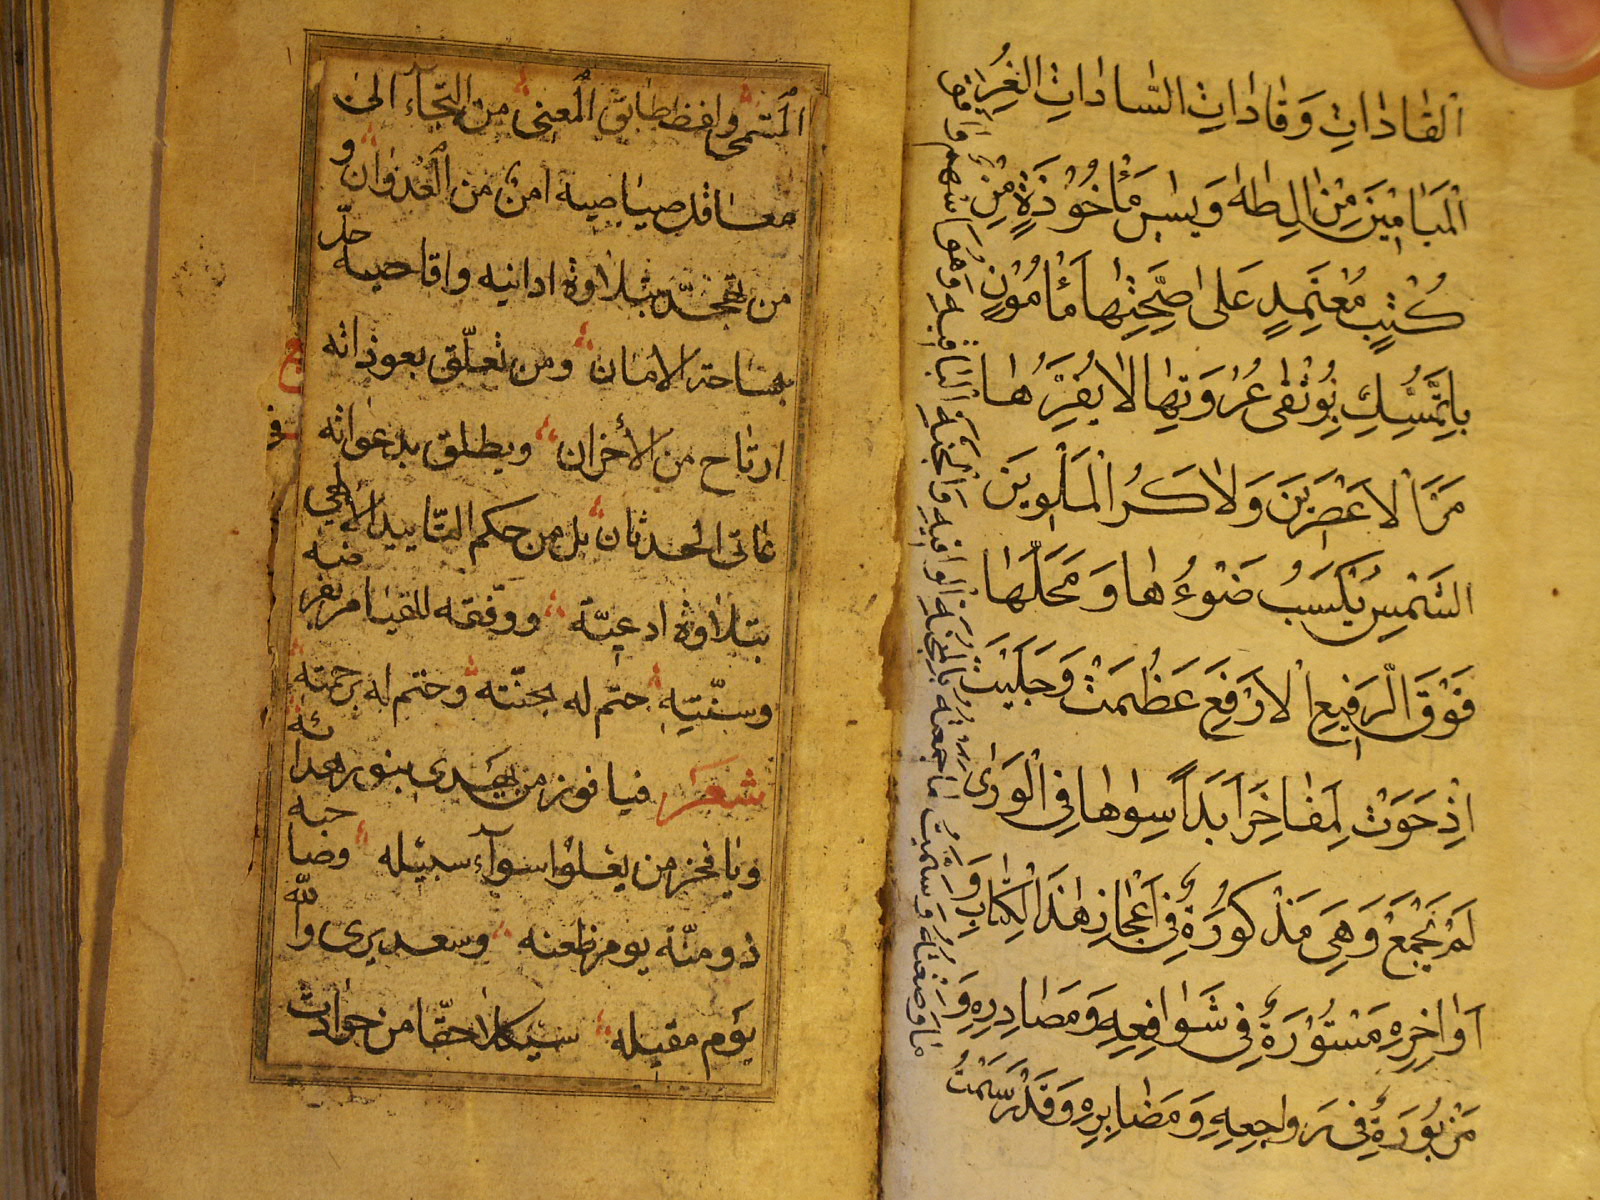 القادات وقادات السادات الغر
الميامين من ال طه ويس مأخوذة من
كتب معتمد على صحتها مأمون
باتمسك بوثقى عروتها لا يغيرها
مر الاعصرين ولا كر الملوين
الشمس يكسب ضوءها ومحلها
فوق الرفيع الارفع عظمت وجليت
اذ حوت لمفاخر ابدا سواها في الورى
لم يجمع وهي مذكورة في اعجاز هذا الكتاب و
اواخره مستورة في شوافعه ومصادره و
مزبورة في مراجعه ومضابره وقد رسمت
ما وضعته وسميت ما جمعته بالجنة الواقية والجنة الباقية وهو اسم وافق
المسمى ولفظ طابق المعنى من التجاء الى
معاقل صياصيه امن من العدوان و
من تجند بتلاوة ادانيه واقاصيه حل
بساحة الامان ومن تعلق بعوذاته
ارتاح من الأحزان وبطلق بدعواته
الحدثان بل من حكم التاييد الالهي
بتلاوة ادعيته ووفقه للقيام بفرضه
وسننه حتم له بجنته وختم له برحمته
شعر فيا فوز من يهدى بنور هدائه
ويا فخر من يعلوا سوآء سبيله وصاحبه
ذو منة يوم ظعنه وسعد يرى والله
يوم مقيله سيكلا حقا من حوادث